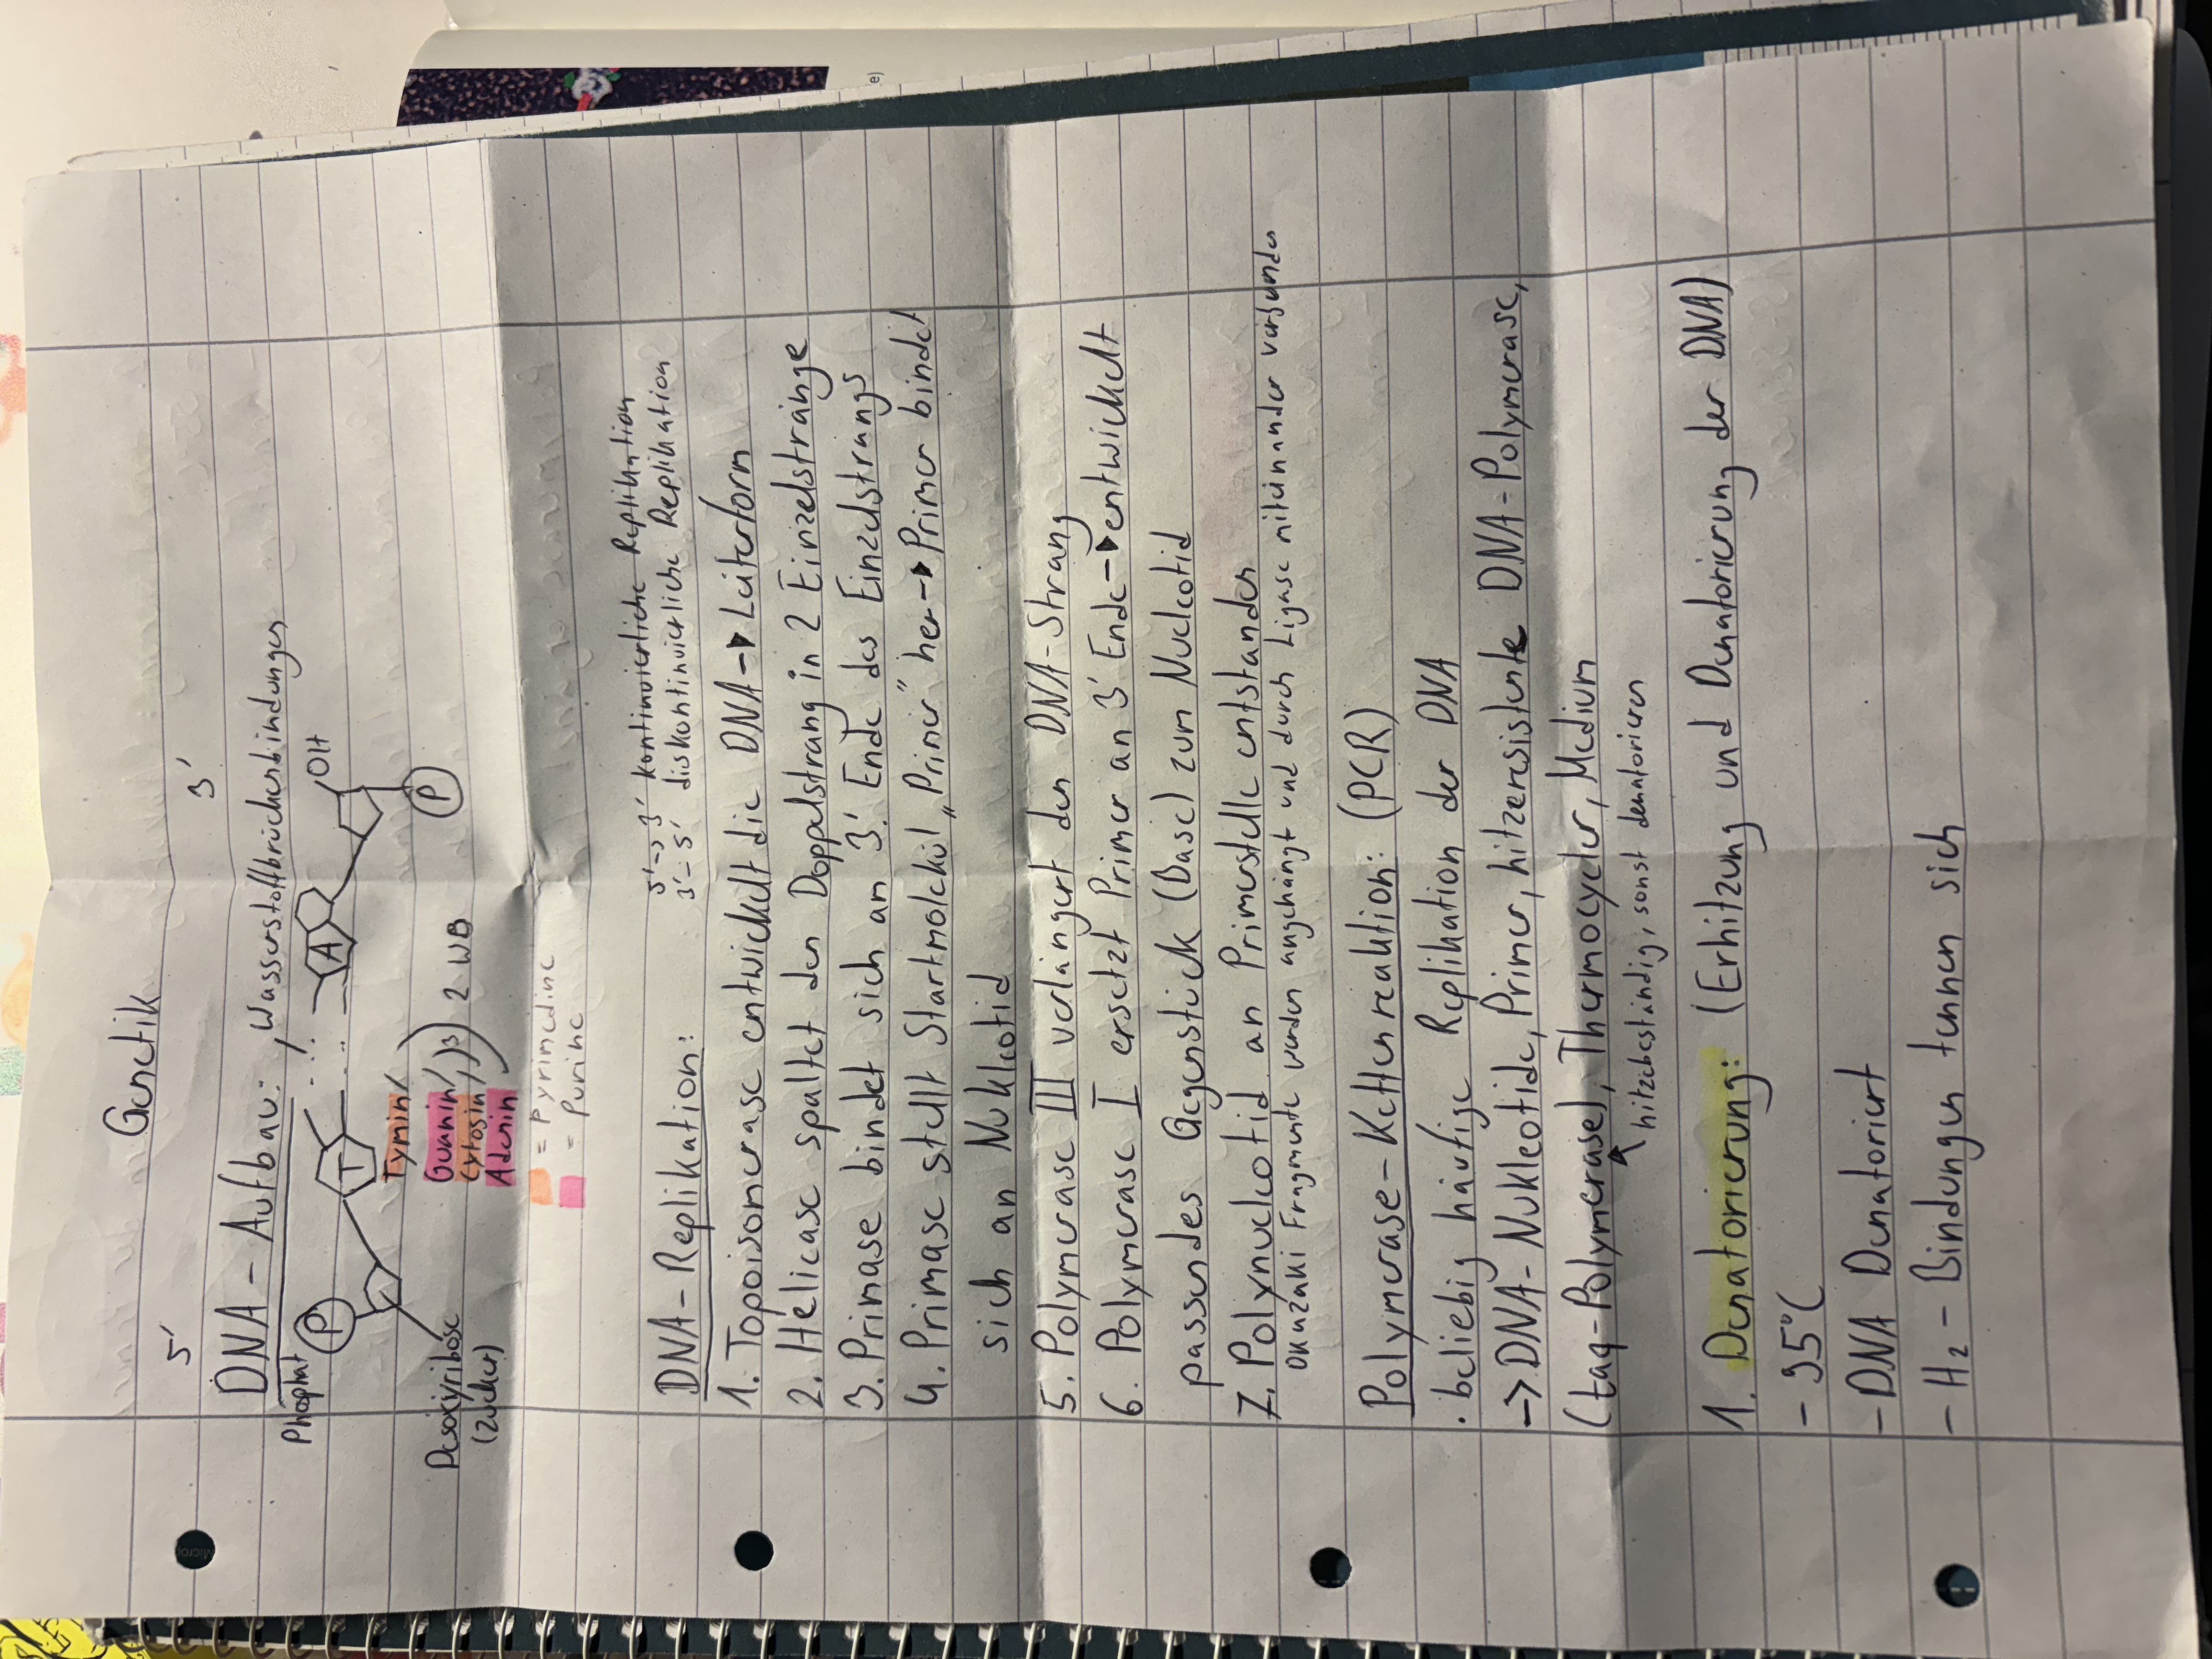 Genetik
5'
3'
DNA - Aufbau: Wasserstoffbrückenbindungen
Phosphat
P
T
A
OH
P
Desoxyribose
(Zucker)
Tymin/
Guanin/
Cytosin/
Adenin
3
2 WB
= Pyrimedine
= Purine
5'-> 3' kontinuierliche Replikation
3'- 5' diskontinuierliche Replikation
DNA-Replikation:
1. Topoisomerase entwickelt die DNA -> Leiterform
2. Helicase spaltet den Doppelstrang in 2 Einzelstränge
3. Primase bindet sich am 3'. Ende des Einzelstrangs
4. Primase stellt Startmolekül „Primer" her -> Primer bindet
sich an Nukleotid
5. Polymerase III verlängert den DNA-Strang
6. Polymerase I ersetzt Primer an 3' Ende -> entwickelt
passendes Gegenstück (Base) zum Nucleotid
7. Polynucleotid an Primerstelle entstanden
Okazaki Fragmente werden angehängt und durch Ligase miteinander verbunden
Polymerase-Kettenreaktion: (PCR)
· beliebig häufige Replikation der DNA
-> DNA-Nukleotide, Primer, hitzeresistente DNA-Polymerase,
(taq-Polymerase), Thermocycler, Medium
hitzebeständig, sonst denatorieren
1. Denatorierung: (Erhitzung und Denatorierung der DNA)
- 95°C
- DNA Denatoriert
- H₂ - Bindungen tennen sich